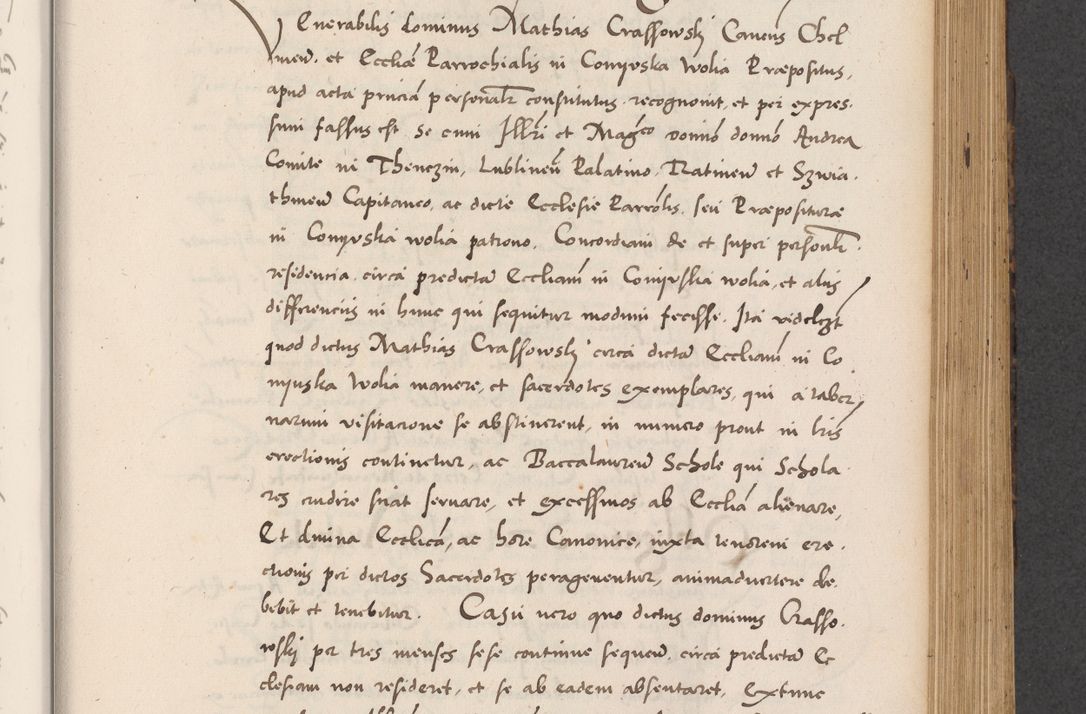 Venerabilis dominus Mathias Crassowskj Canonus Chel
men. et Ecclie Parrochialis in Conyvska Wolia Præpositus,
apud acta prucia personalr constitutus recognovit, et per expres
sum fassus est. se cum Illri et Magco domino domno Andrea
Comite in Thenczin, Lublinen Palatino, Ratinen et Szwia
thinen Capitaneo, ac dicte Ecclesie Parrolis. seu Præpositure
in Conyvska wolia patrono, Concordiam de et super personali
residencia circa predictam Eccliam in Conyvska wolia, et aliis
differenciis in hunc qui sequitur modum fecisse. Ita videlczt
quod dictus Mathias Crassowskj circa dictam Eccliam in Co
nyuska Wolia manere, et sacerdotes exemplares, qui a taber
narum visitacione se abstinerent, in numero prout in lris
erectionis continetur, ac Baccalaureum Schole qui Schola
res erudire sciat servare, et excessivos ab Ecclia alienare,
Et divina Ecclica, ac hore Canonice, iuxta tenorem ere
ctionis per dictos Sacerdotes peragerentur, animadvertere de
bebit et tenebitur. Casu vero quo dictus dominus Crasso
wskj per tres menses sese continue sequen. circa predictam Ec
clesiam non resideret, et se ab eadem absentaret, extunc